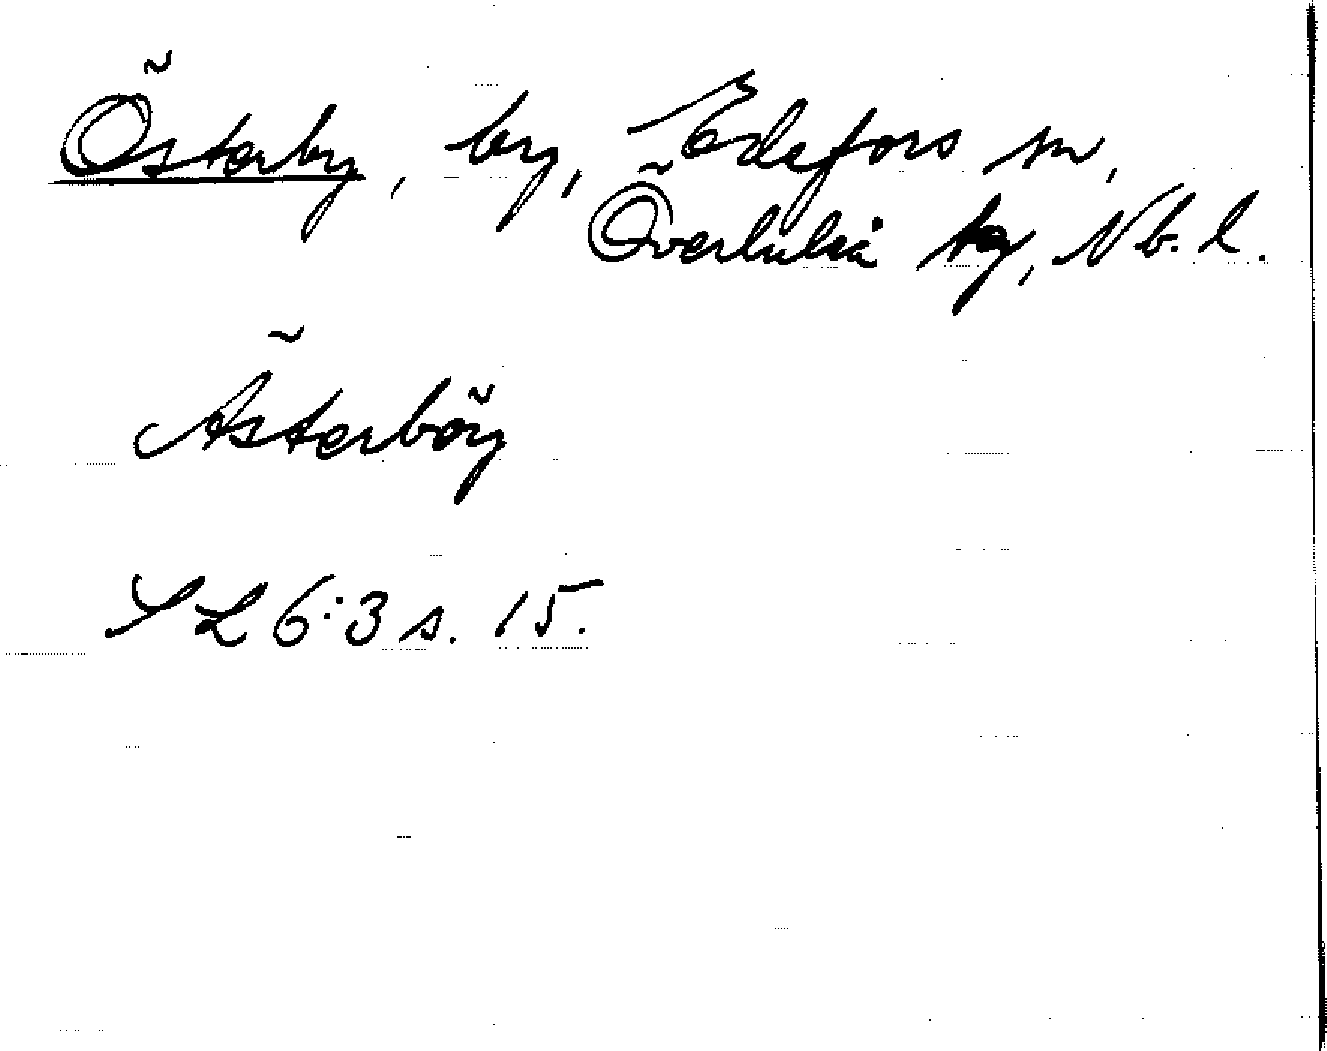 Österby, by, Edefors sn,
Överluleå tg, Nb. l.
Österböy
SL 6:3 s. 15.